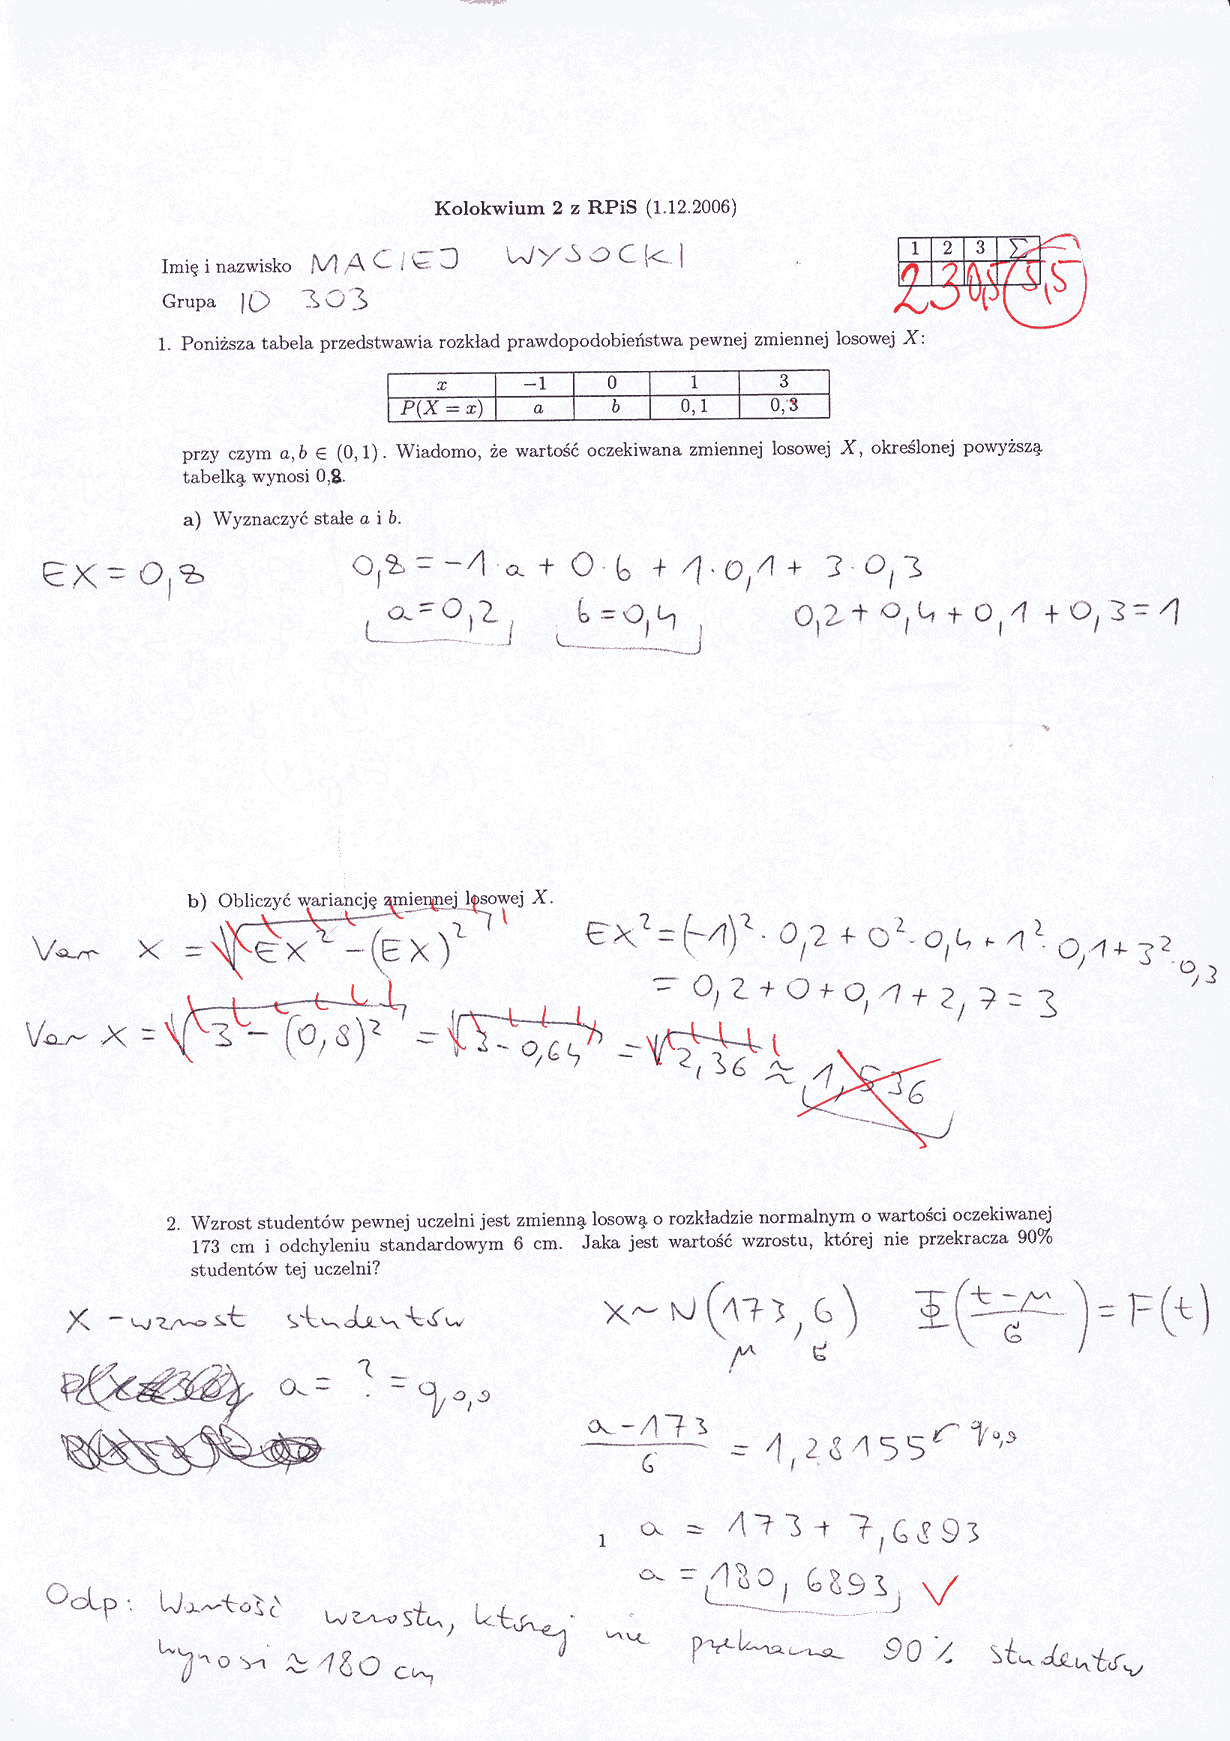 Kolokwium 2 z RPiS (1.12.2006)
Imię i nazwisko MACIEJ WYSOCKI
Grupa ID 303
1 2 3 Σ
2 3 0,5 5,5
1. Poniższa tabela przedstwawia rozkład prawdopodobieństwa pewnej zmiennej losowej X:
x −1 0 1 3
P(X = x) a b 0,1 0,3
przy czym a, b ∈ (0,1). Wiadomo, że wartość oczekiwana zmiennej losowej X, określonej powyższą
tabelką wynosi 0,8.
a) Wyznaczyć stałe a i b.
EX = 0,8 0,8 = −1·a + 0·b + 1·0,1 + 3·0,3
a = 0,2 b = 0,4 0,2 + 0,4 + 0,1 + 0,3 = 1
b) Obliczyć wariancję zmiennej losowej X.
Var X = √(EX² − (EX)²) EX² = (−1)²·0,2 + 0²·0,4 + 1²·0,1 + 3²·0,3
= 0,2 + 0 + 0,1 + 2,7 = 3
Var X = √(3 − (0,8)²) = √(3 − 0,64) = √2,36 ≈ 1,536
2. Wzrost studentów pewnej uczelni jest zmienną losową o rozkładzie normalnym o wartości oczekiwanej
173 cm i odchyleniu standardowym 6 cm. Jaka jest wartość wzrostu, której nie przekracza 90%
studentów tej uczelni?
X - wzrost studentów X ~ N(173, 6) Φ((t − μ)/σ) = F(t)
μ σ
a = ? = q0,9
(a − 173)/6 = 1,28155 ← q0,9
a = 173 + 7,6893
1
a = 180,6893 ✓
Odp: Wartość wzrostu, której nie przekracza 90% studentów
wynosi ≈ 180 cm